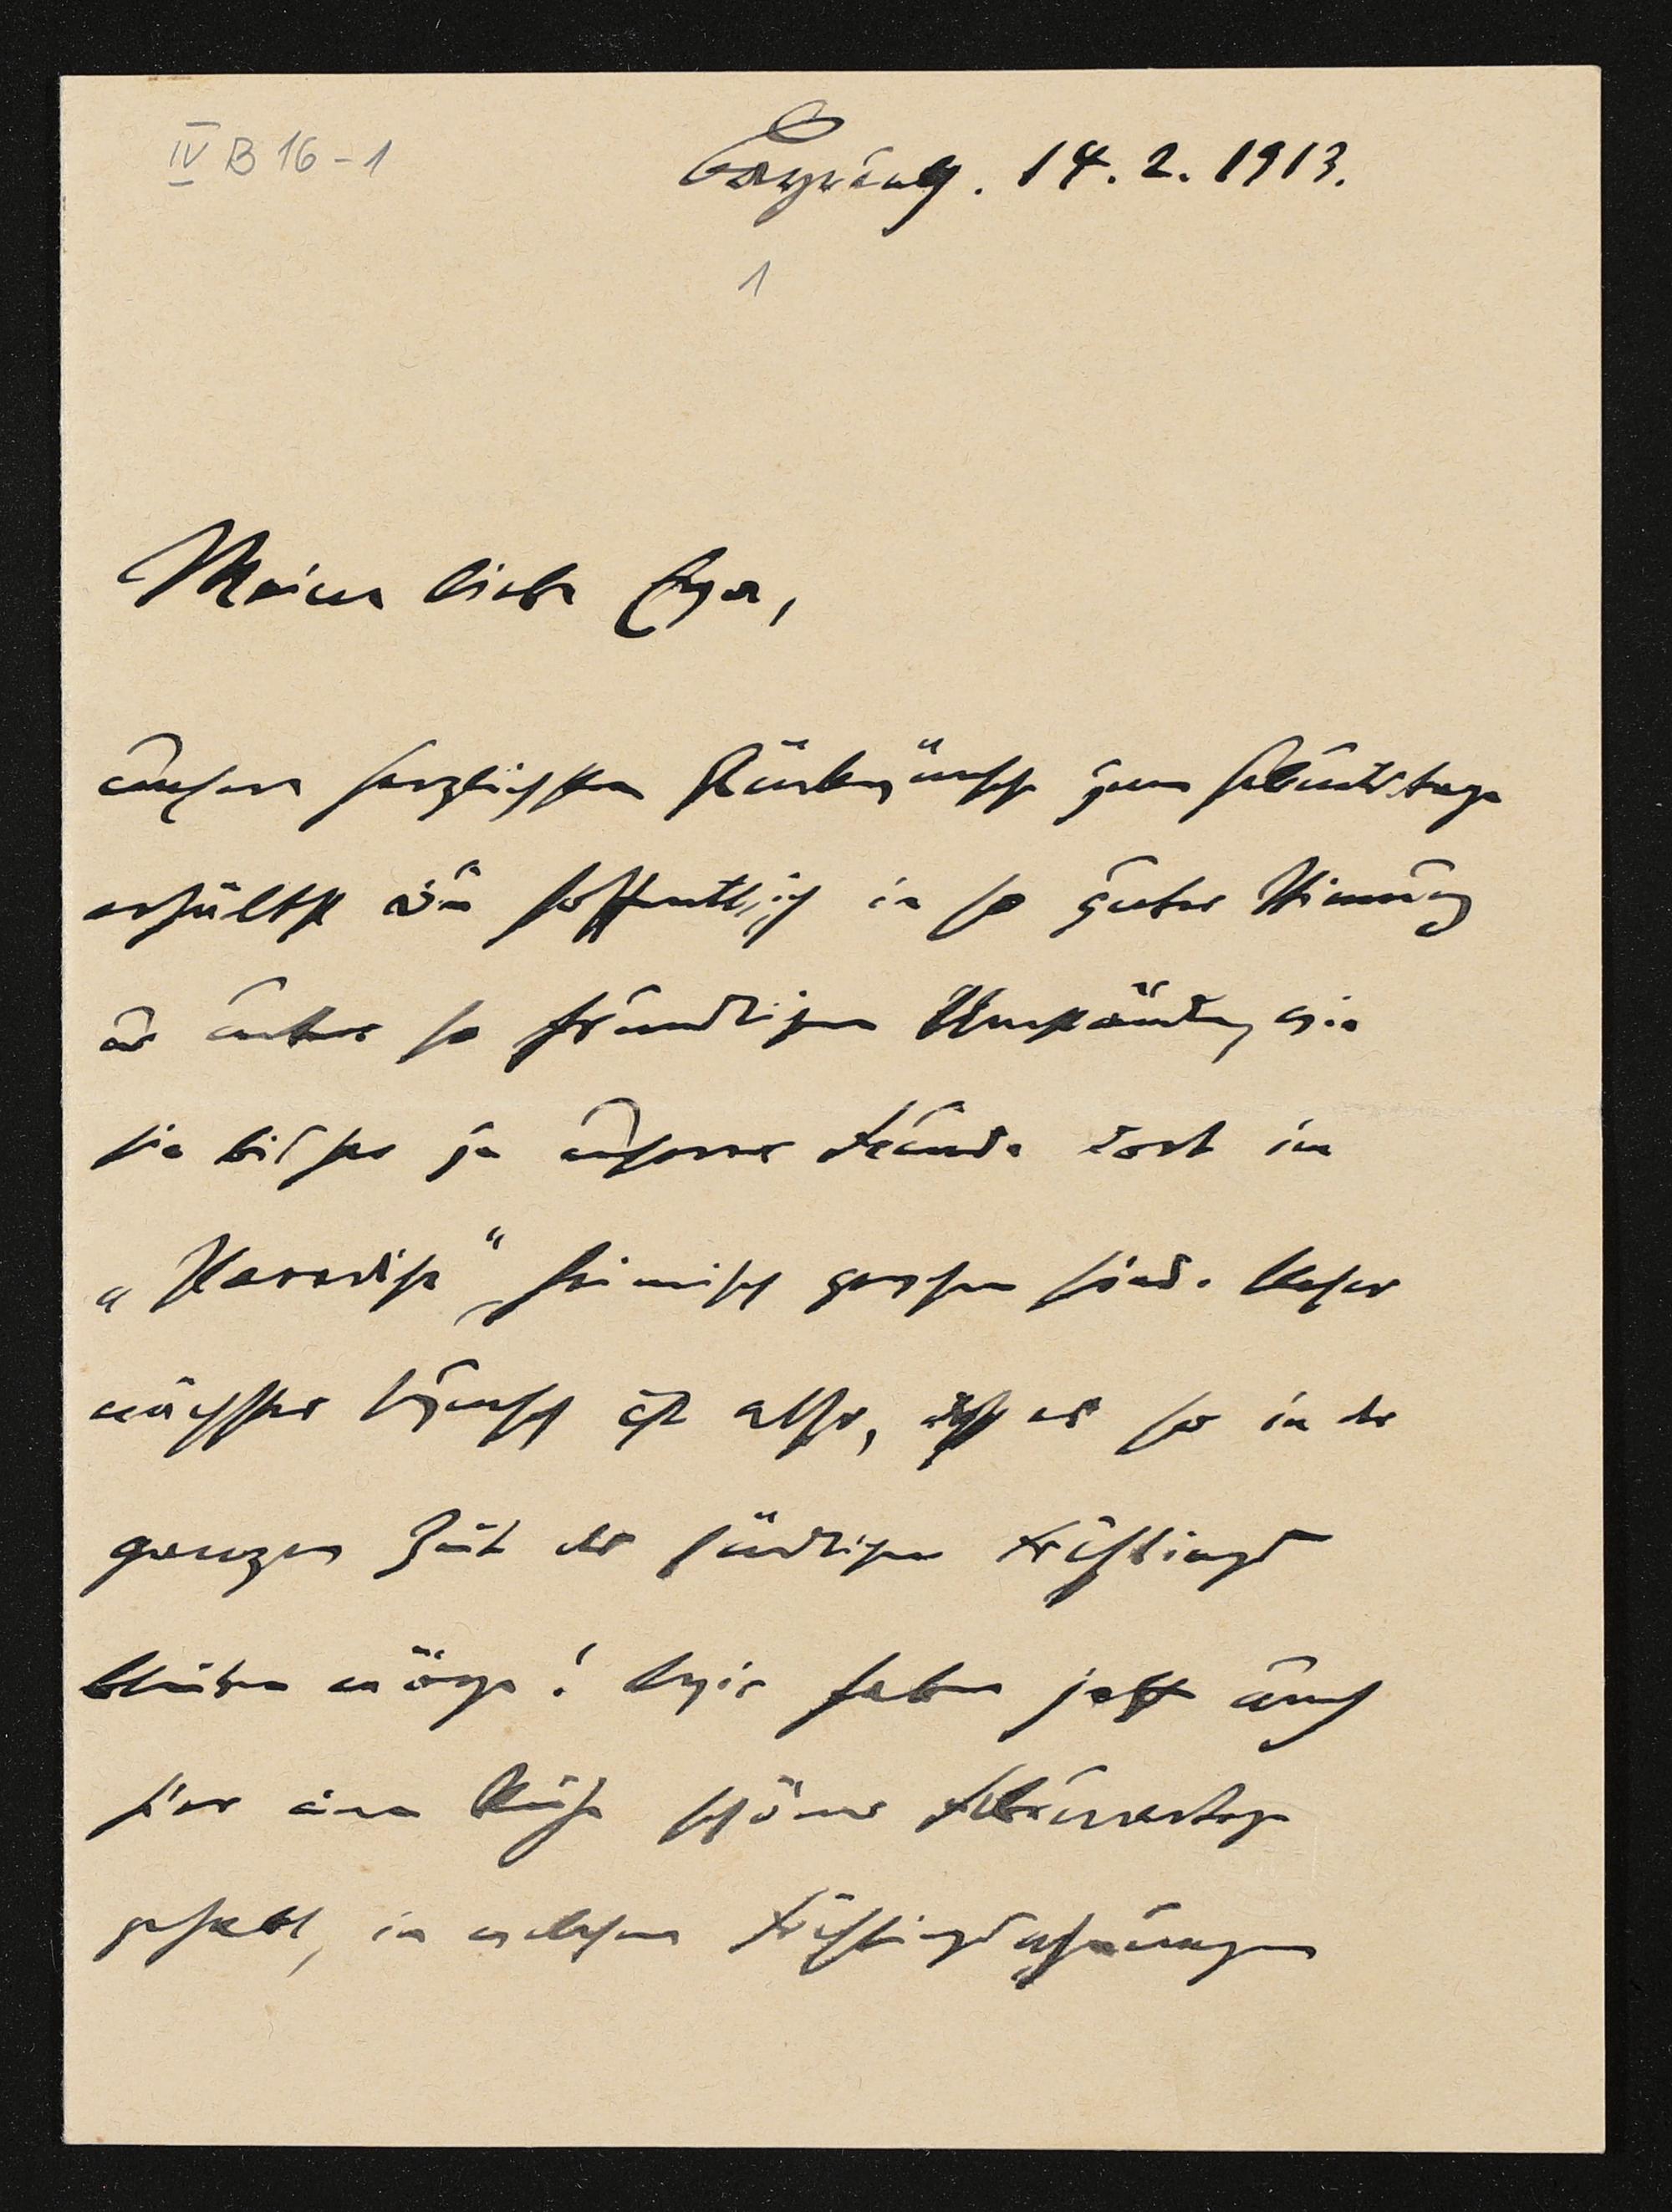 IV B 16-1
Bayreuth. 14. 2. 1913.
1
Meine liebe Eva,
unsere herzlichsten Glückwünsche zum Geburtstage
erhältst du hoffentlich in so guter Stimmung
u unter so freundlichen Umständen, wie
sie bisher ja unserer Freunde dort im
„Paradise“ heimisch gewesen sind. Unser
nächster Wunsch ist also, daß es so in der
ganzen Zeit des südlichen Frühlings
bleiben möge! Wir haben jetzt auch
hier eine Reihe schöner Februartage
gehabt, in welchen Frühlingsahnungen